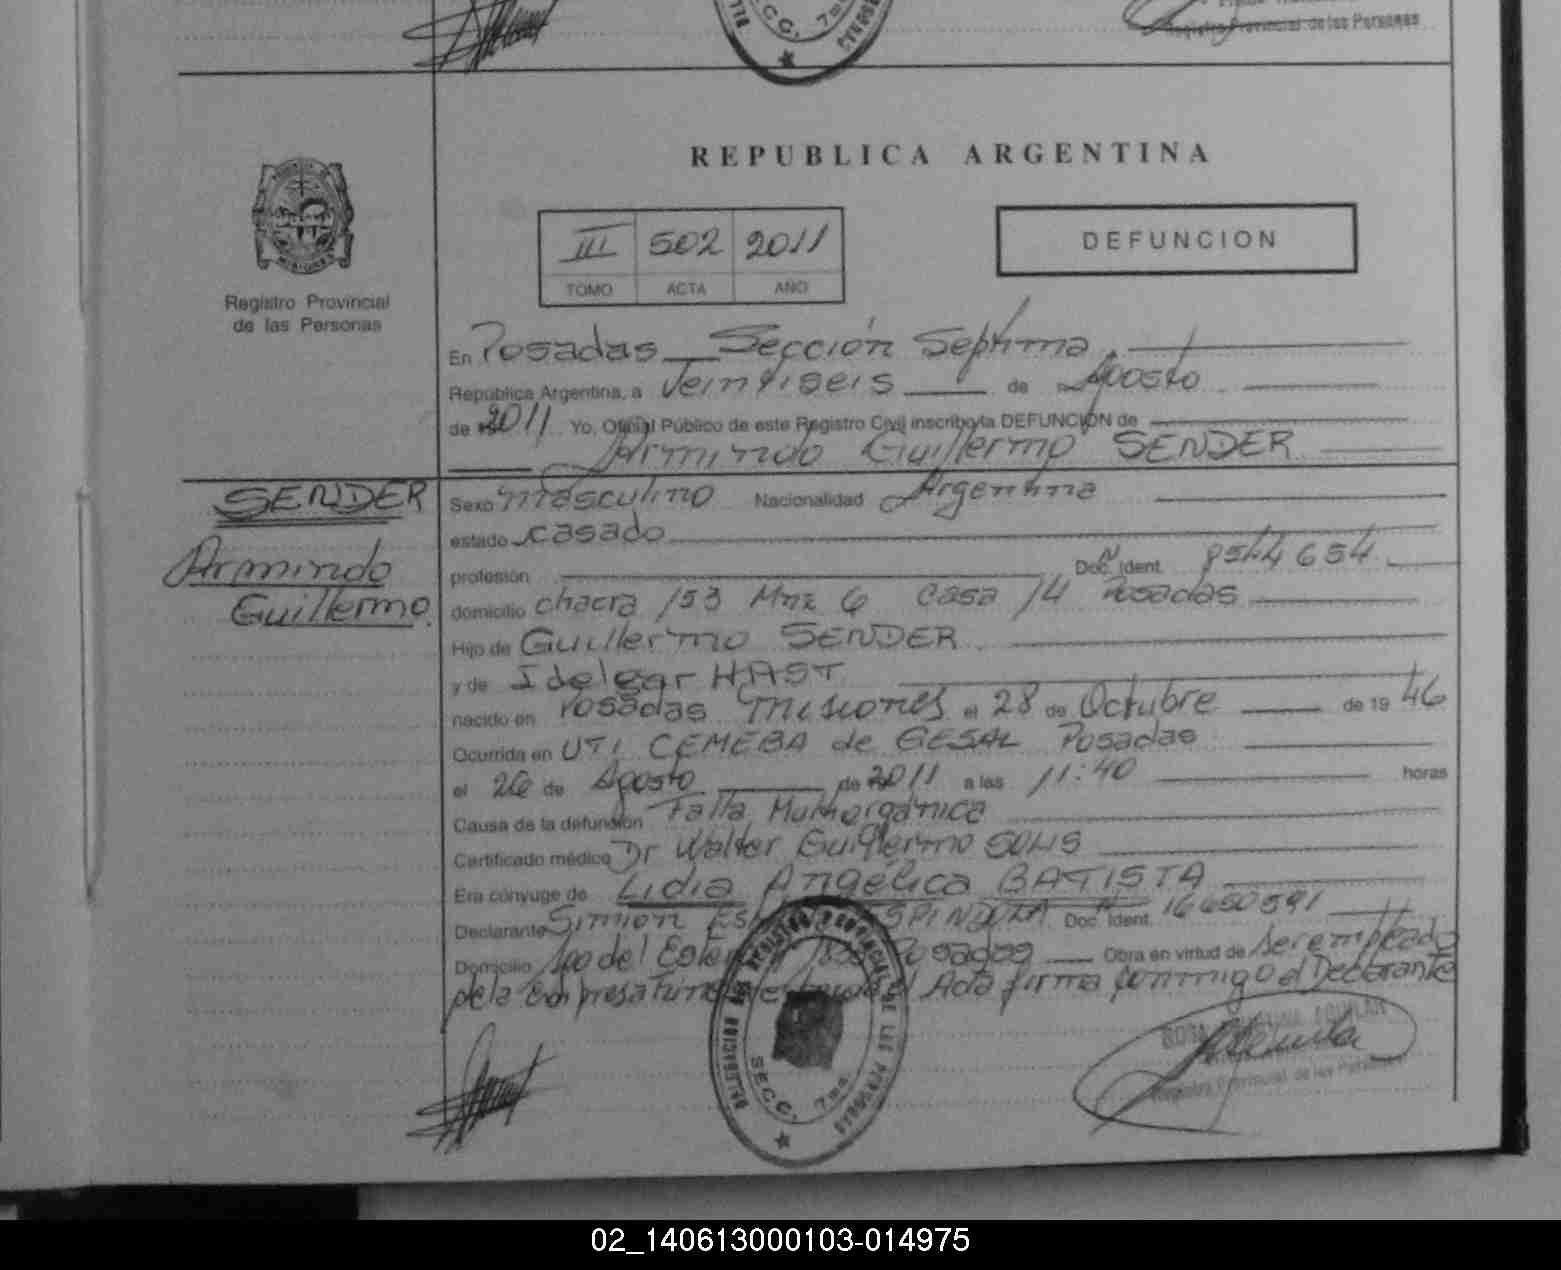 Registro Provincial de las Personas
REPUBLICA ARGENTINA
III 502 2011
TOMO ACTA AÑO
DEFUNCION
MISIONES
Registro Provincial
de las Personas
En Posadas Sección Septima
República Argentina, a Veintiseis de Agosto
de 2011 Yo, Oficial Público de este Registro Civil inscribo la DEFUNCION de
Armindo Guillermo SENDER
SENDER
Armindo
Guillermo
Sexo masculino Nacionalidad Argentina
estado casado
profesión Doc. Ident. 8544654
domicilio chacra 153 Mnz 6 Casa 14 Posadas
Hijo de Guillermo SENDER
y de Idelgar HAST
nacido en Posadas Misiones el 28 de Octubre de 1946
Ocurrida en UTI CEMEBA de GESAL Posadas
el 26 de Agosto de 2011 a las 11:40 horas
Causa de la defunción Falla Multiorgánica
Certificado médico Dr Walter Guillermo SOLIS
Era cónyuge de Lidia Angélica BATISTA
Declarante Simion ESPINDOLA Doc. Ident. 16650591
Domicilio Sgo del Estero Posadas Obra en virtud de ser empleado
de la Empresa Acta firma conmigo el Declarante
DELEGACION DEL REGISTRO PROVINCIAL DE LAS PERSONAS
SECC. 7ma.
AGUILAR
Registro Provincial de las Personas
02_140613000103-014975